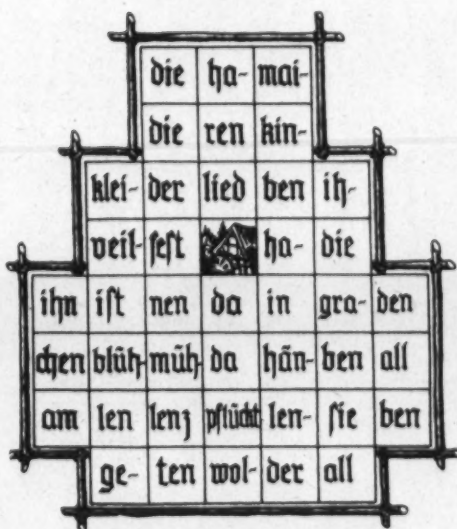 die ha- mai-
die ren kin-
klei- der lied ben ih-
veil- fest ha- die
ihn ist nen da in gra- den
chen blüh- müh- da hän- ben all
am len lenz pflückt len- sie ben
ge- ten wol- der all